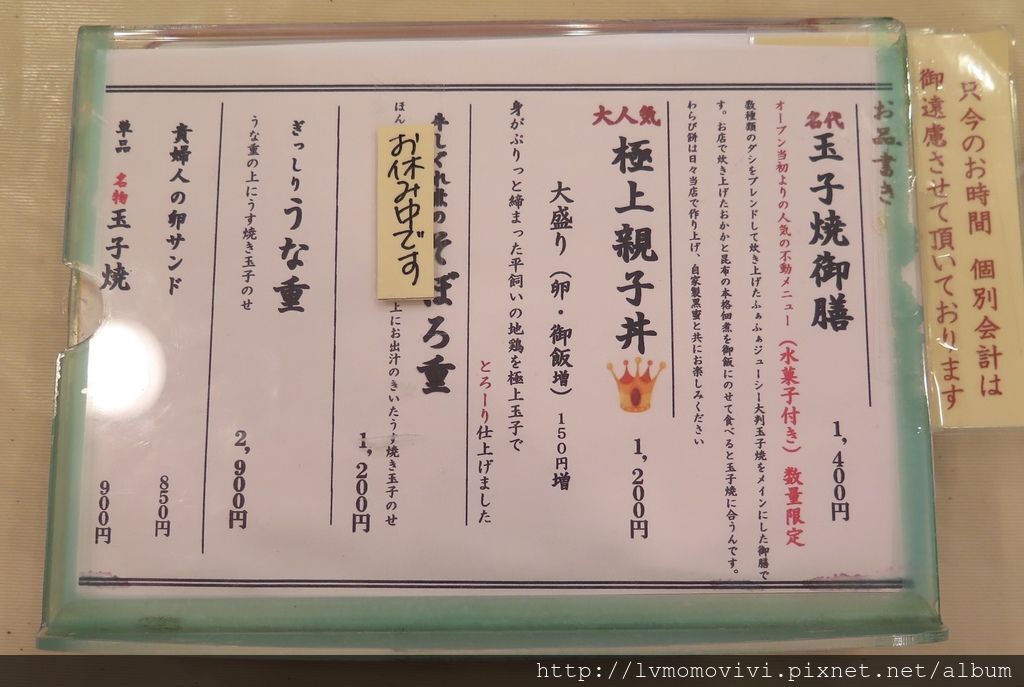 只今のお時間 個別会計は
御遠慮させて頂いております
お品書き
名代 玉子焼御膳 1,400円
オープン当初よりの人気の不動メニュー (水菓子付き) 数量限定
数種類のダシをブレンドして炊き上げたふぁふぁジューシー大判玉子焼をメインにした御膳で
す。お店で炊き上げたおかかと昆布の本格佃煮を御飯にのせて食べると玉子焼に合うんです。
わらび餅は日々当店で作り上げ、自家製黒蜜と共にお楽しみください
大人気 極上親子丼 1,200円
大盛り (卵・御飯増) 150円増
身がぷりっと締まった平飼いの地鶏を極上玉子で
とろーり仕上げました
牛しぐれ煮のそぼろ重 1,200円
お休み中です
ほん
上にお出汁のきいたうす焼き玉子のせ
ぎっしりうな重 2,900円
うな重の上にうす焼き玉子のせ
貴婦人の卵サンド 850円
単品 名物 玉子焼 900円
http://lvmomovivi.pixnet.net/album